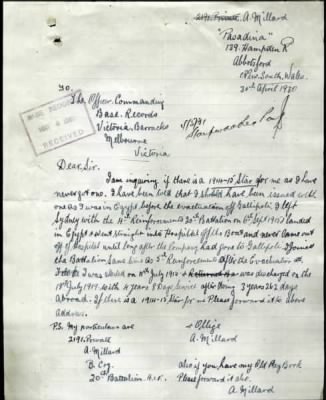 2191. Private. A. Millard
"Pasadina"
139. Hampden R
Abbotsford
New. South. Wales.
30th April 1920
To.
The Officer Commanding
Base. Records
Victoria. Barracks
Melbourne
Victoria
BASE RECORDS
MAY 4 1920
RECEIVED
Dear. Sir.
I am inquiring if there is a 1914-15 Star for me as I have
never got one. I have been told that I should have been issued with
one as I was in Egypt before the evacuation off Gallipoli. I left
Sydney with the 4th Reinforcements 20th Battalion on 6th Sept 1915 I landed
in Egypt & went straight into Hospital off the Boat and never came out
off Hospital until long after the Company had gone to Gallipoli. I joined
the Battalion Lines as 5th Reinforcements after the Evacuation
I was on 10th July 1915 & was discharged on the
18th July 1919 with 4 years 8 Days service after doing 3 years 262 days
abroad. If there is a 1914-15 Star for me Please forward it to above
address.
P.S. My particulars are & Oblige
2191. Private A. Millard
A. Millard
B. Coy. also if you have my Old Pay Book
20th Battalion. A.I.F. Please forward it also.
A. Millard